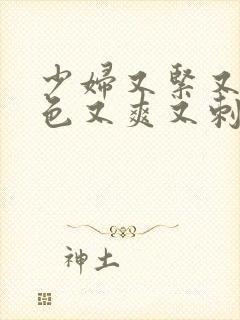 少婦又緊又
色又爽又刺
神土